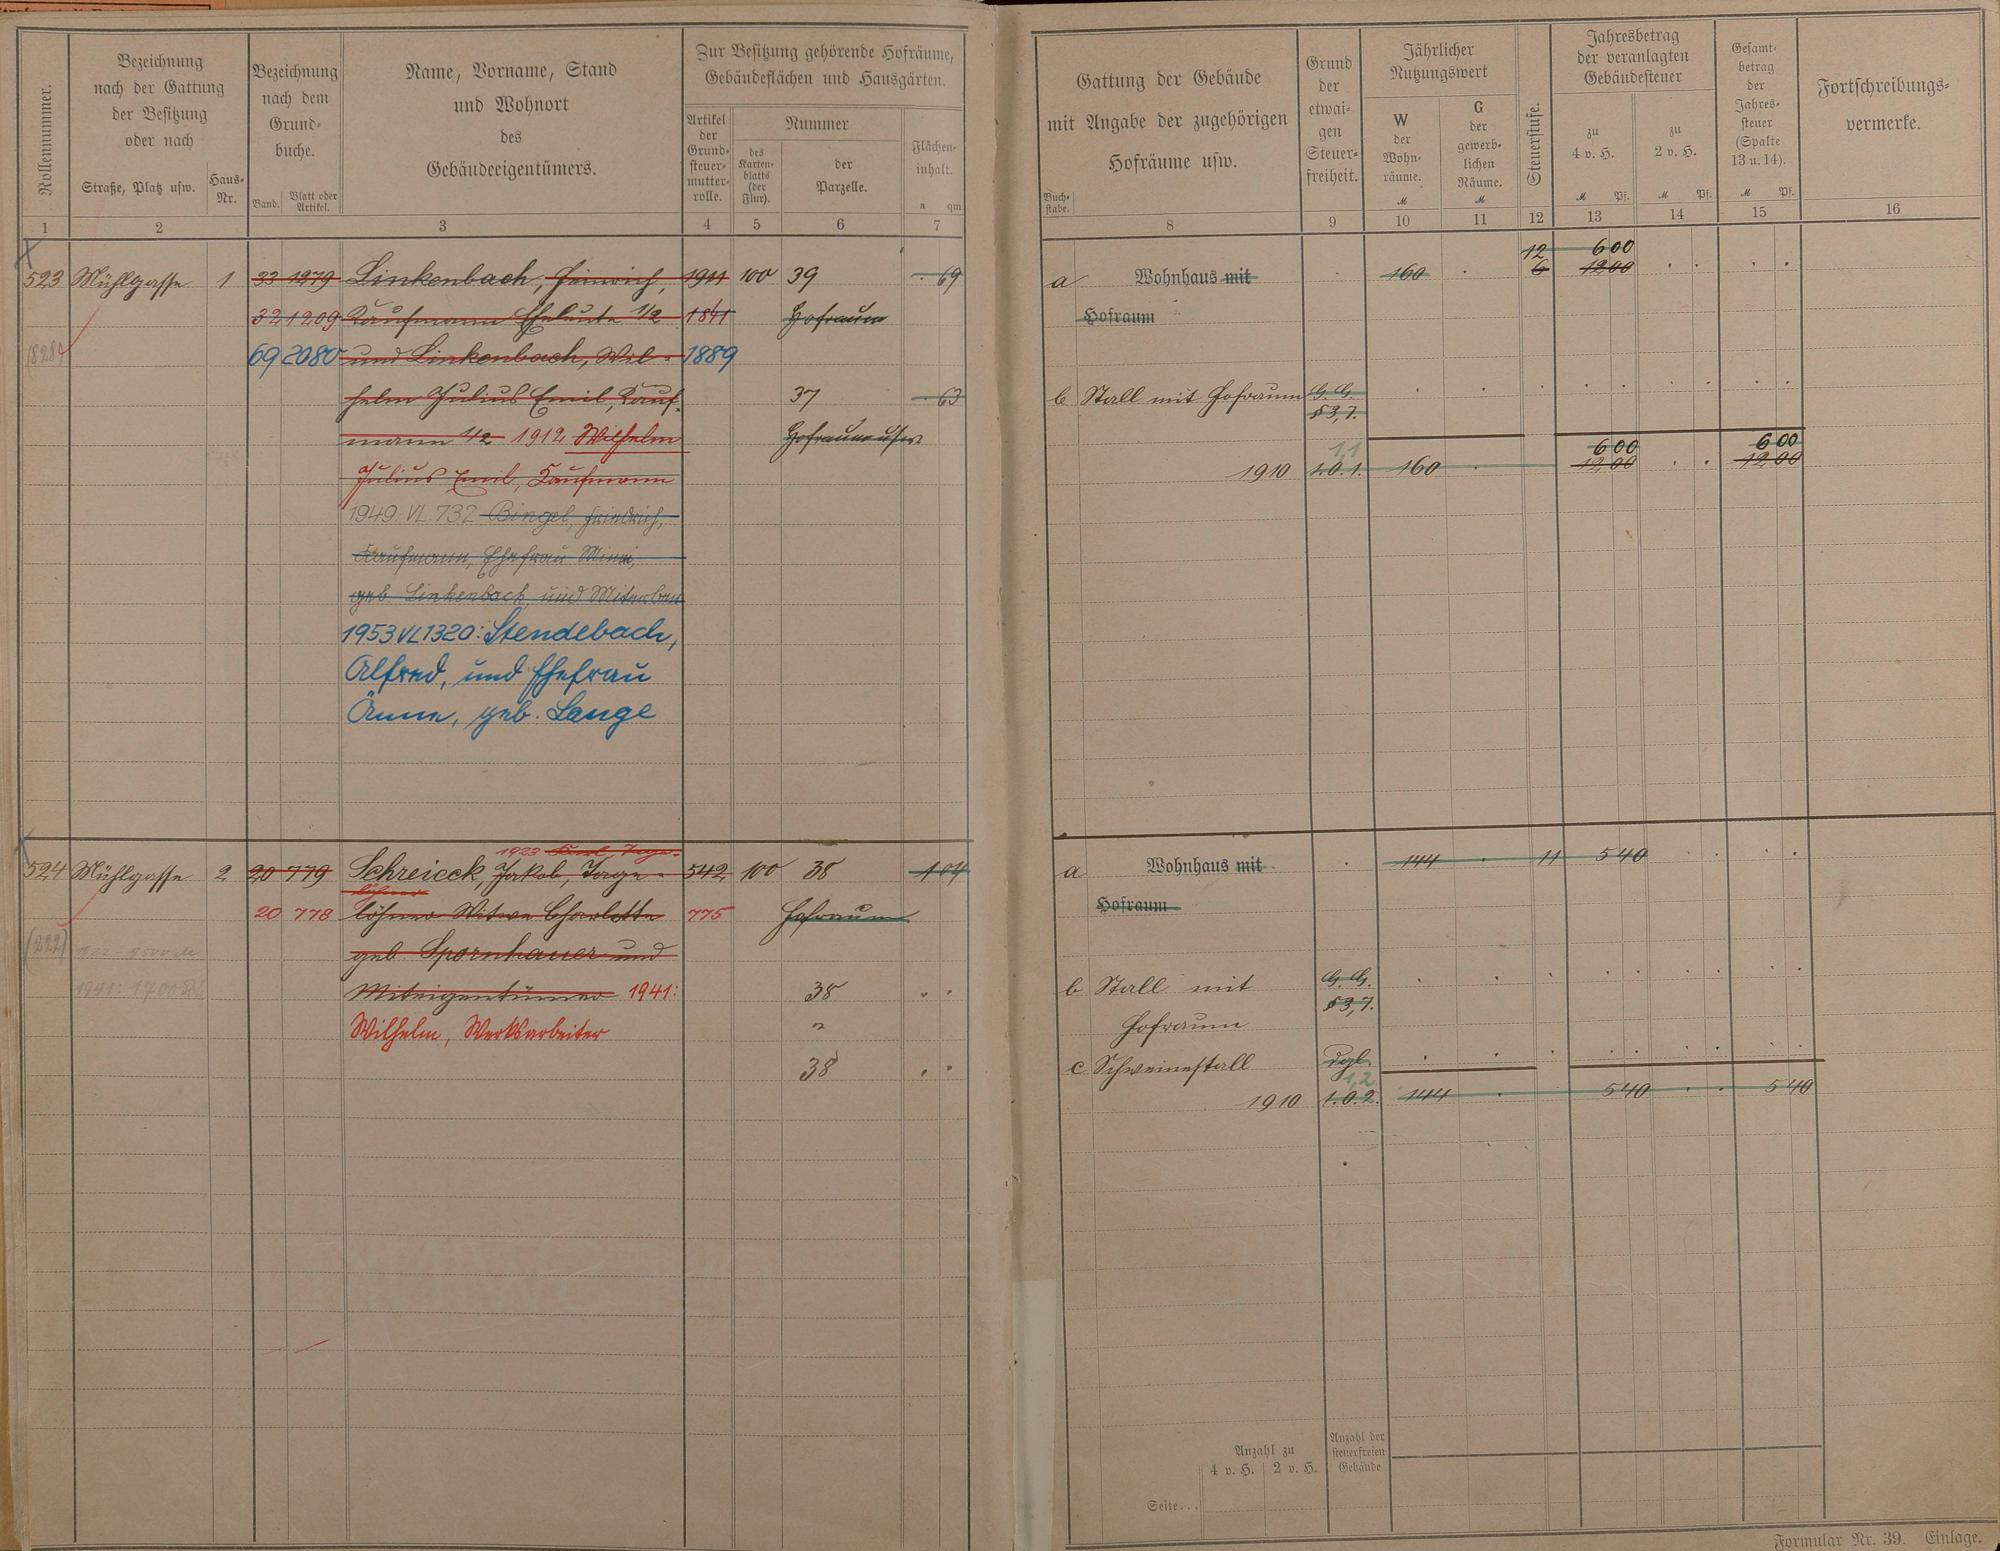 Rollennummer.
Bezeichnung
nach der Gattung
der Besitzung
oder nach
Straße, Platz usw.
Haus-
Nr.
Bezeichnung
nach dem
Grund-
buche.
Band.
Blatt oder
Artikel.
Name, Vorname, Stand
und Wohnort
des
Gebäudeeigentümers.
Zur Besitzung gehörende Hofräume,
Gebäudeflächen und Hausgärten.
Artikel
der
Grund-
steuer-
mutter-
rolle.
Nummer
des
Karten-
blatts
(der
Flur).
der
Parzelle.
Flächen-
inhalt.
a qm
1 2 3 4 5 6 7
523 Mühlgasse 1 33 1279 Linkenbach, Heinrich, 1911 100 39 69
32 1209 Kaufmann Eheleute 1/2 1841 Hofraum
69 2080 und Linkenbach, Wil- 1889
helm Julius Emil, Kauf- 37 63
mann 1/2 1912 Wilhelm Hofraum usw
Julius Emil, Kaufmann
1949. VL 732 Bingel, Friedrich,
Kaufmann, Ehefrau Minni,
geb. Linkenbach und Miterben
1953 VL 1320: Stendebach,
Alfred, und Ehefrau
Änne, geb. Lange
1923 Karl, Tage-
524 Mühlgasse 2 20 779 Schreieck, Jakob, Tage- 542 100 38 1 04
löhner
20 778 löhner Witwe Charlotte 775 Hofraum
(222) geb. Spornhauer und
1941: 1700 Miteigentümer 1941: 38
Wilhelm, Werksarbeiter
38
Gattung der Gebäude
mit Angabe der zugehörigen
Hofräume usw.
Buch-
stabe.
Grund
der
etwai-
gen
Steuer-
freiheit.
Jährlicher
Nutzungswert
W
der
Wohn-
räume.
M
G
der
gewerb-
lichen
Räume.
M
Steuerstufe.
Jahresbetrag
der veranlagten
Gebäudesteuer
zu
4 v. H.
M Pf.
zu
2 v. H.
M Pf.
Gesamt-
betrag
der
Jahres-
steuer
(Spalte
13 u. 14).
M Pf.
Fortschreibungs-
vermerke.
8 9 10 11 12 13 14 15 16
12 6 00
a Wohnhaus mit 160 6 12 00
Hofraum
b Stall mit Hofraum G. G.
§ 3,7.
1,1 6 00 6 00
1910 1.0.1. 160 12 00 12 00
a Wohnhaus mit 144 11 5 40
Hofraum
b Stall mit G. G.
§ 3,7.
Hofraum
c Schweinestall dgl.
1,2
1910 1.0.2. 144 5 40 5 40
Anzahl zu
4 v. H. 2 v. H.
Anzahl der
steuerfreien
Gebäude
Seite...
Formular Nr. 39. Einlage.